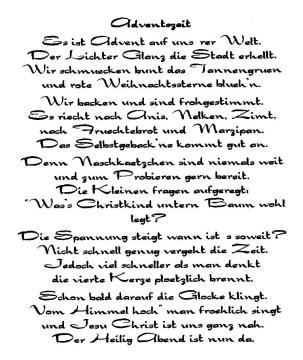 Adventszeit
Es ist Advent auf uns rer Welt.
Der Lichter Glanz die Stadt erhellt.
Wir schmuecken bunt das Tannengruen
und rote Weihnachtssterne blueh'n.
Wir backen und sind frohgestimmt.
Es riecht nach Anis, Nelken, Zimt.
nach Fruechtebrot und Marzipan.
Das Selbstgeback'ne kommt gut an.
Denn Naschkaetzchen sind niemals weit
und zum Probieren gern bereit.
Die Kleinen fragen aufgeregt:
"Was's Christkind untern Baum wohl
legt?"
Die Spannung steigt wann ist s soweit?
Nicht schnell genug vergeht die Zeit.
Jedoch viel schneller als man denkt
die vierte Kerze ploetzlich brennt.
Schon bald darauf die Glocke klingt.
"Vom Himmel hoch" man froehlich singt
und Jesu Christ ist uns ganz nah.
Der Heilig Abend ist nun da.